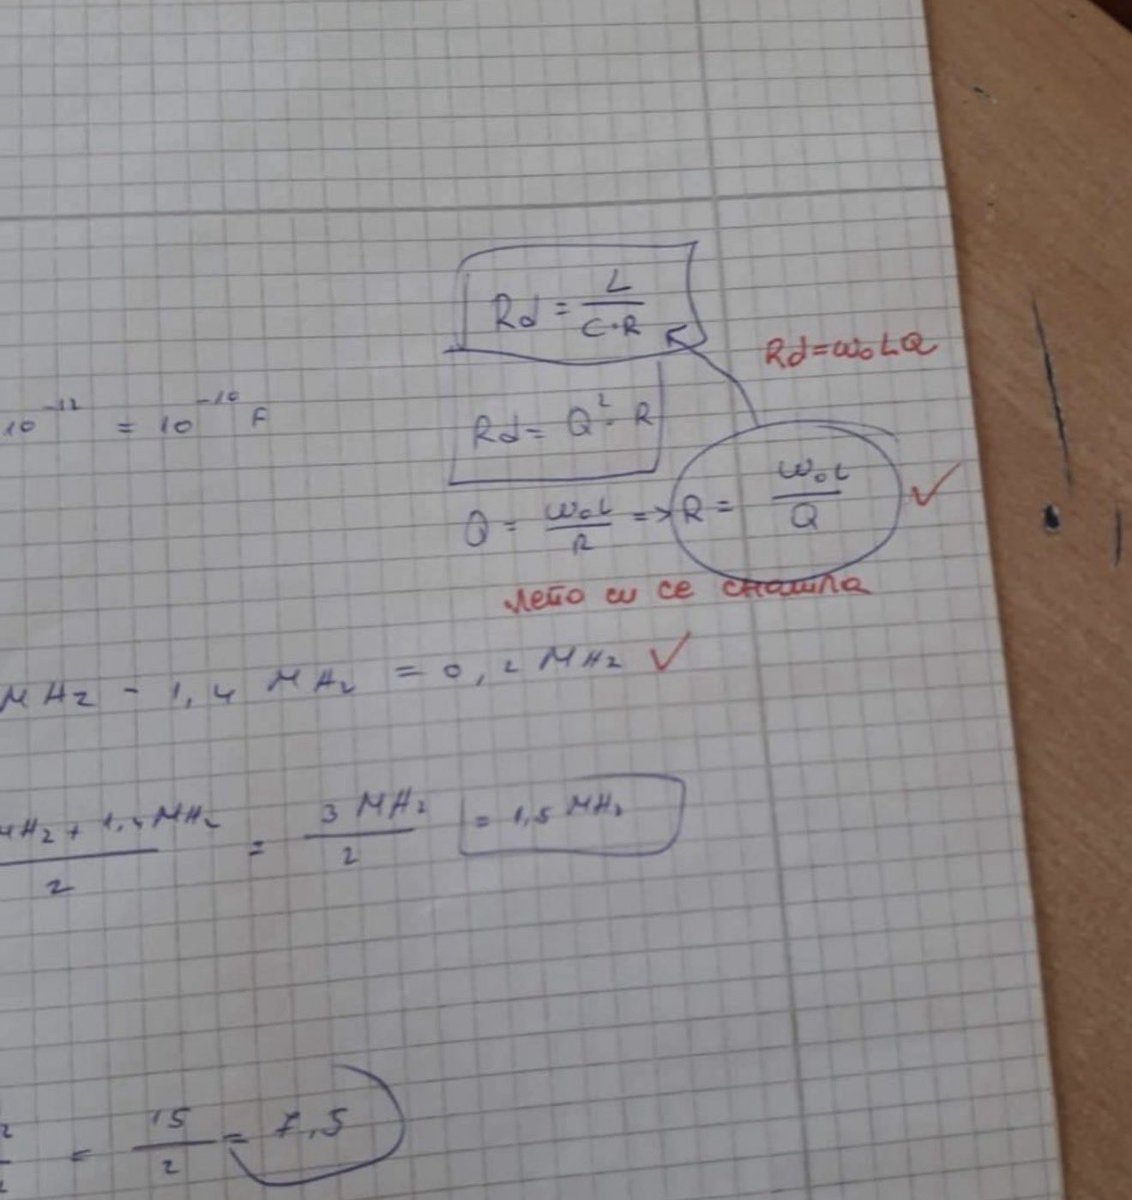 Rd = L / C·R
Rd = ω₀LQ
10⁻¹² = 10⁻¹⁰ F
Rd = Q² · R
Q = ω₀L / R => R = ω₀L / Q ✓
лепо си се снашла
MHz - 1,4 MHz = 0,2 MHz ✓
MHz + 1,4 MHz / 2 = 3 MHz / 2 = 1,5 MHz
= 15 / 2 = 7,5